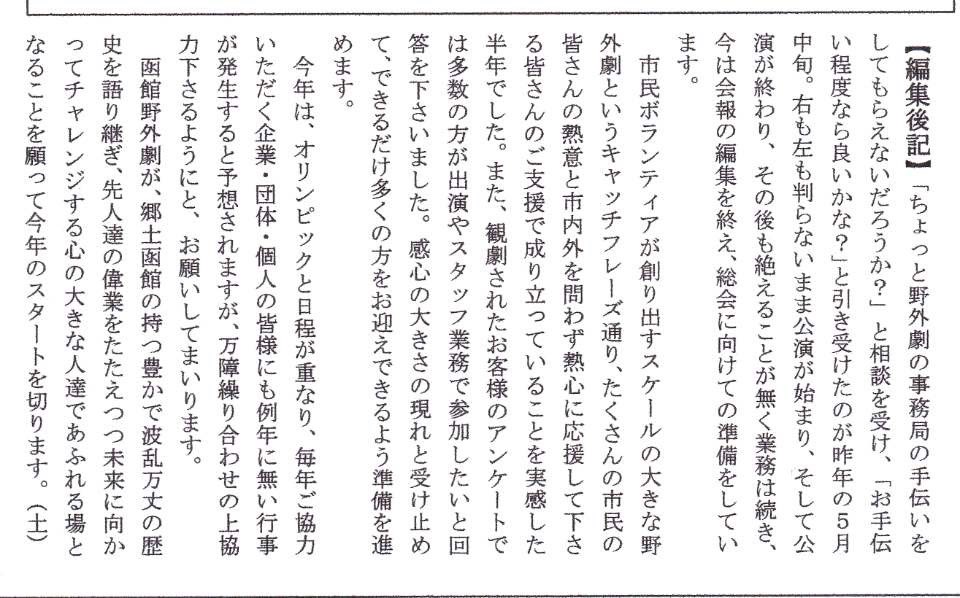 【編集後記】「ちょっと野外劇の事務局の手伝いを
してもらえないだろうか？」と相談を受け、「お手伝
い程度なら良いかな？」と引き受けたのが昨年の５月
中旬。右も左も判らないまま公演が始まり、そして公
演が終わり、その後も絶えることが無く業務は続き、
今は会報の編集を終え、総会に向けての準備をしてい
ます。
　市民ボランティアが創り出すスケールの大きな野
外劇というキャッチフレーズ通り、たくさんの市民の
皆さんの熱意と市内外を問わず熱心に応援して下さ
る皆さんのご支援で成り立っていることを実感した
半年でした。また、観劇されたお客様のアンケートで
は多数の方が出演やスタッフ業務で参加したいと回
答を下さいました。感心の大きさの現れと受け止め
て、できるだけ多くの方をお迎えできるよう準備を進
めます。
　今年は、オリンピックと日程が重なり、毎年ご協力
いただく企業・団体・個人の皆様にも例年に無い行事
が発生すると予想されますが、万障繰り合わせの上協
力下さるようにと、お願いしてまいります。
　函館野外劇が、郷土函館の持つ豊かで波乱万丈の歴
史を語り継ぎ、先人達の偉業をたたえつつ未来に向か
ってチャレンジする心の大きな人達であふれる場と
なることを願って今年のスタートを切ります。（土）